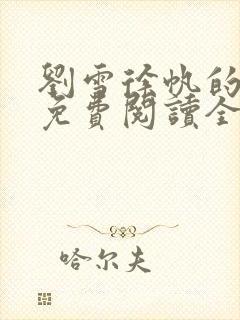 劉雪徐帆的
免費閱讀全
哈尔夫